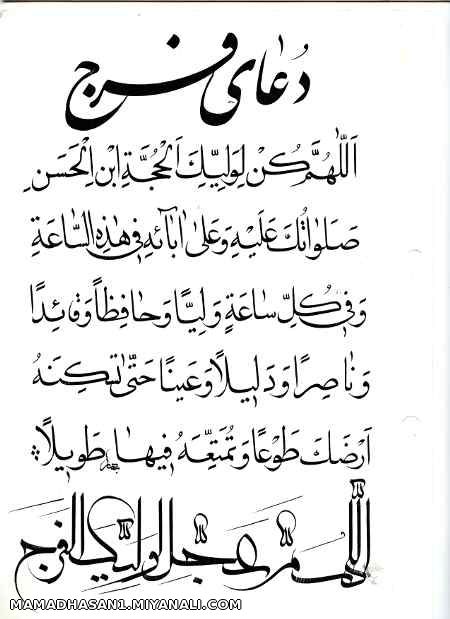 دُعای فرج
اَللّٰهُمَّ كُنْ لِوَلِيِّكَ الْحُجَّةِ ابْنِ الْحَسَنِ
صَلَواتُكَ عَلَيْهِ وَعَلىٰ اٰبآئِهِ فى هٰذِهِ السّٰاعَةِ
وَفى كُلِّ سٰاعَةٍ وَلِيًّا وَحٰافِظاً وَقٰائِدًا
وَنٰاصِرًا وَدَليلاً وَعَيْنًا حَتّىٰ تُسْكِنَهُ
اَرْضَكَ طَوْعًا وَتُمَتِّعَهُ فيهٰا طَويلاً
اللّٰهم عجل لوليك الفرج
MAMADHASAN1.MIYANALI.COM